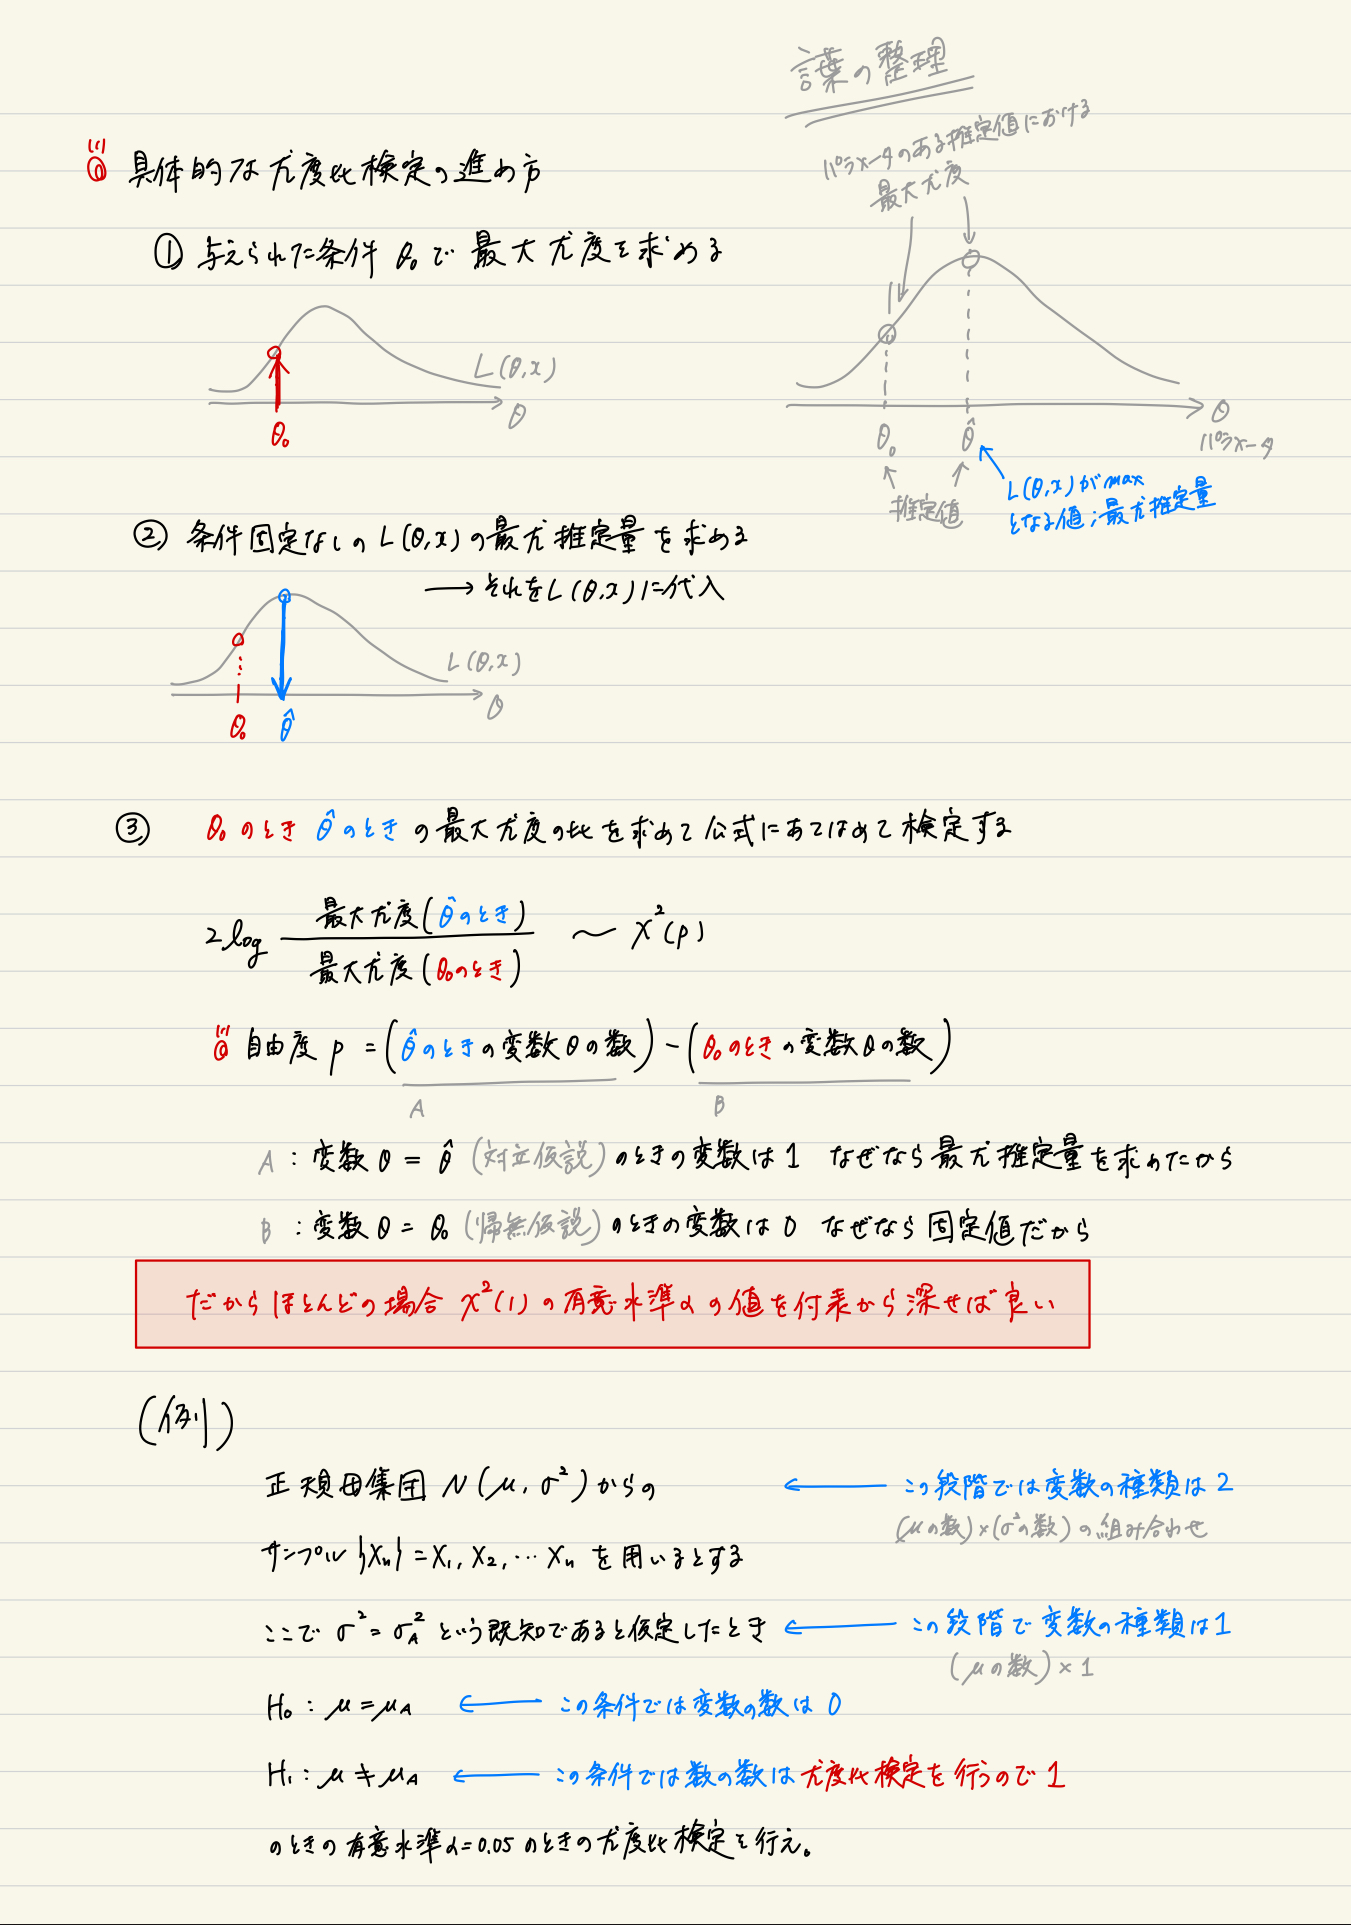 言葉の整理
パラメータのある推定値における
最大尤度
具体的な尤度比検定の進め方
① 与えられた条件 θ₀ で 最大尤度を求める
L(θ,x)
θ
θ₀
θ
パラメータ
θ₀
θ̂
推定値
L(θ,x)がmax
となる値;最尤推定量
② 条件固定なしの L(θ,x) の最尤推定量を求める
→ それをL(θ,x)に代入
L(θ,x)
θ
θ₀
θ̂
③ θ₀のとき θ̂のとき の最大尤度の比を求めて公式にあてはめて検定する
2log 最大尤度(θ̂のとき) 〜 χ²(p)
最大尤度(θ₀のとき)
自由度 p = (θ̂のときの変数θの数) - (θ₀のときの変数θの数)
A
B
A : 変数 θ = θ̂ (対立仮説) のときの変数は1 なぜなら最尤推定量を求めたから
B : 変数 θ = θ₀ (帰無仮説) のときの変数は0 なぜなら固定値だから
だからほとんどの場合 χ²(1) の有意水準αの値を付表から深せば良い
(例)
正規母集団 N(μ, σ²) からの ← この段階では変数の種類は2
(μの数)×(σ²の数)の組み合わせ
サンプル {Xn} = X₁, X₂, … Xn を用いるとする
ここで σ² = σA² という既知であると仮定したとき ← この段階で変数の種類は1
(μの数)×1
H₀ : μ = μA ← この条件では変数の数は 0
H₁ : μ ≠ μA ← この条件では数の数は尤度比検定を行うので1
のときの有意水準α=0.05のときの尤度比検定を行え。